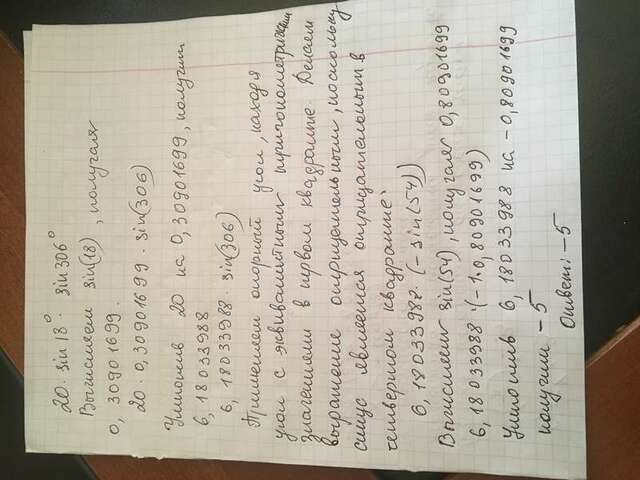 20 · sin 18° · sin 306°
Вычисляем sin(18), получая
0, 30901699.
20 · 0,30901699 · sin(306)
Умножив 20 на 0,30901699, получим
6, 18033988
6, 18033988 · sin(306)
Применяем опорный угол, находя
угол с эквивалентными тригонометрическими
значениями в первом квадранте. Делаем
выражение отрицательным, поскольку
синус является отрицательным в
четвертом квадранте.
6, 18033987 · (- sin(54))
Вычисляем sin(54), получая 0,80901699
6, 18033988 · (-1 · 0,80901699)
Умножив 6, 18033988 на - 0,80901699
получим -5
Ответ: -5